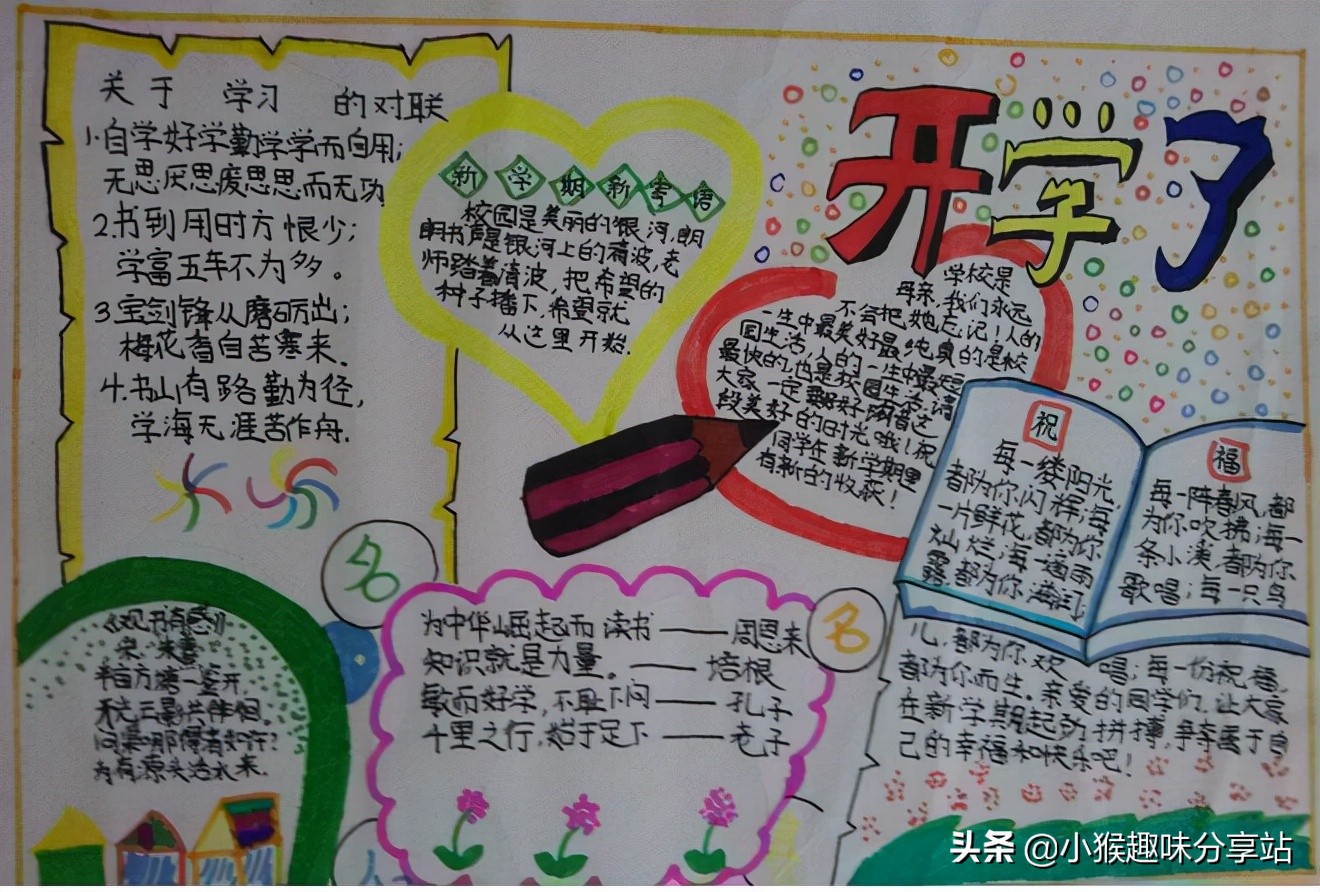 关于 学习 的对联
1.自学好学勤学学而自用;
无思厌思废思思而无功
2.书到用时方恨少;
学富五车不为多。
3.宝剑锋从磨砺出;
梅花香自苦寒来.
4.书山有路勤为径,
学海无涯苦作舟.
新学期新寄语
校园是美丽的银河,朗
朗书声是银河上的清波,老
师踏着清波,把希望的
种子播下,希望就
从这里开始.
开学了
学校是
母亲,我们永远
不会把她忘记!人的
一生中最美好最纯真的是校
园生活,人的一生中最
最快的,也是校园生活,请
大家一定要好好珍惜这
段美好的时光哦!祝
同学在新学期里
有新的收获!
祝
每一缕阳光,
都为你闪耀;每
一片鲜花,都为你
灿烂;每一滴雨
露,都为你滋润;
福
每一阵春风,都
为你吹拂;每一
条小溪,都为你
歌唱;每一只鸟
儿,都为你欢唱;每一份祝福,
都为你而生.亲爱的同学们,让大家
在新学期起努力拼搏,争夺属于自
己的幸福和快乐吧!
名
名
为中华崛起而读书——周恩来
知识就是力量。——培根
敏而好学,不耻下问——孔子
千里之行,始于足下——老子
《观书有感》
宋 朱熹
半亩方塘一鉴开,
天光云影共徘徊.
问渠哪得清如许?
为有源头活水来.
头条 @小猴趣味分享站